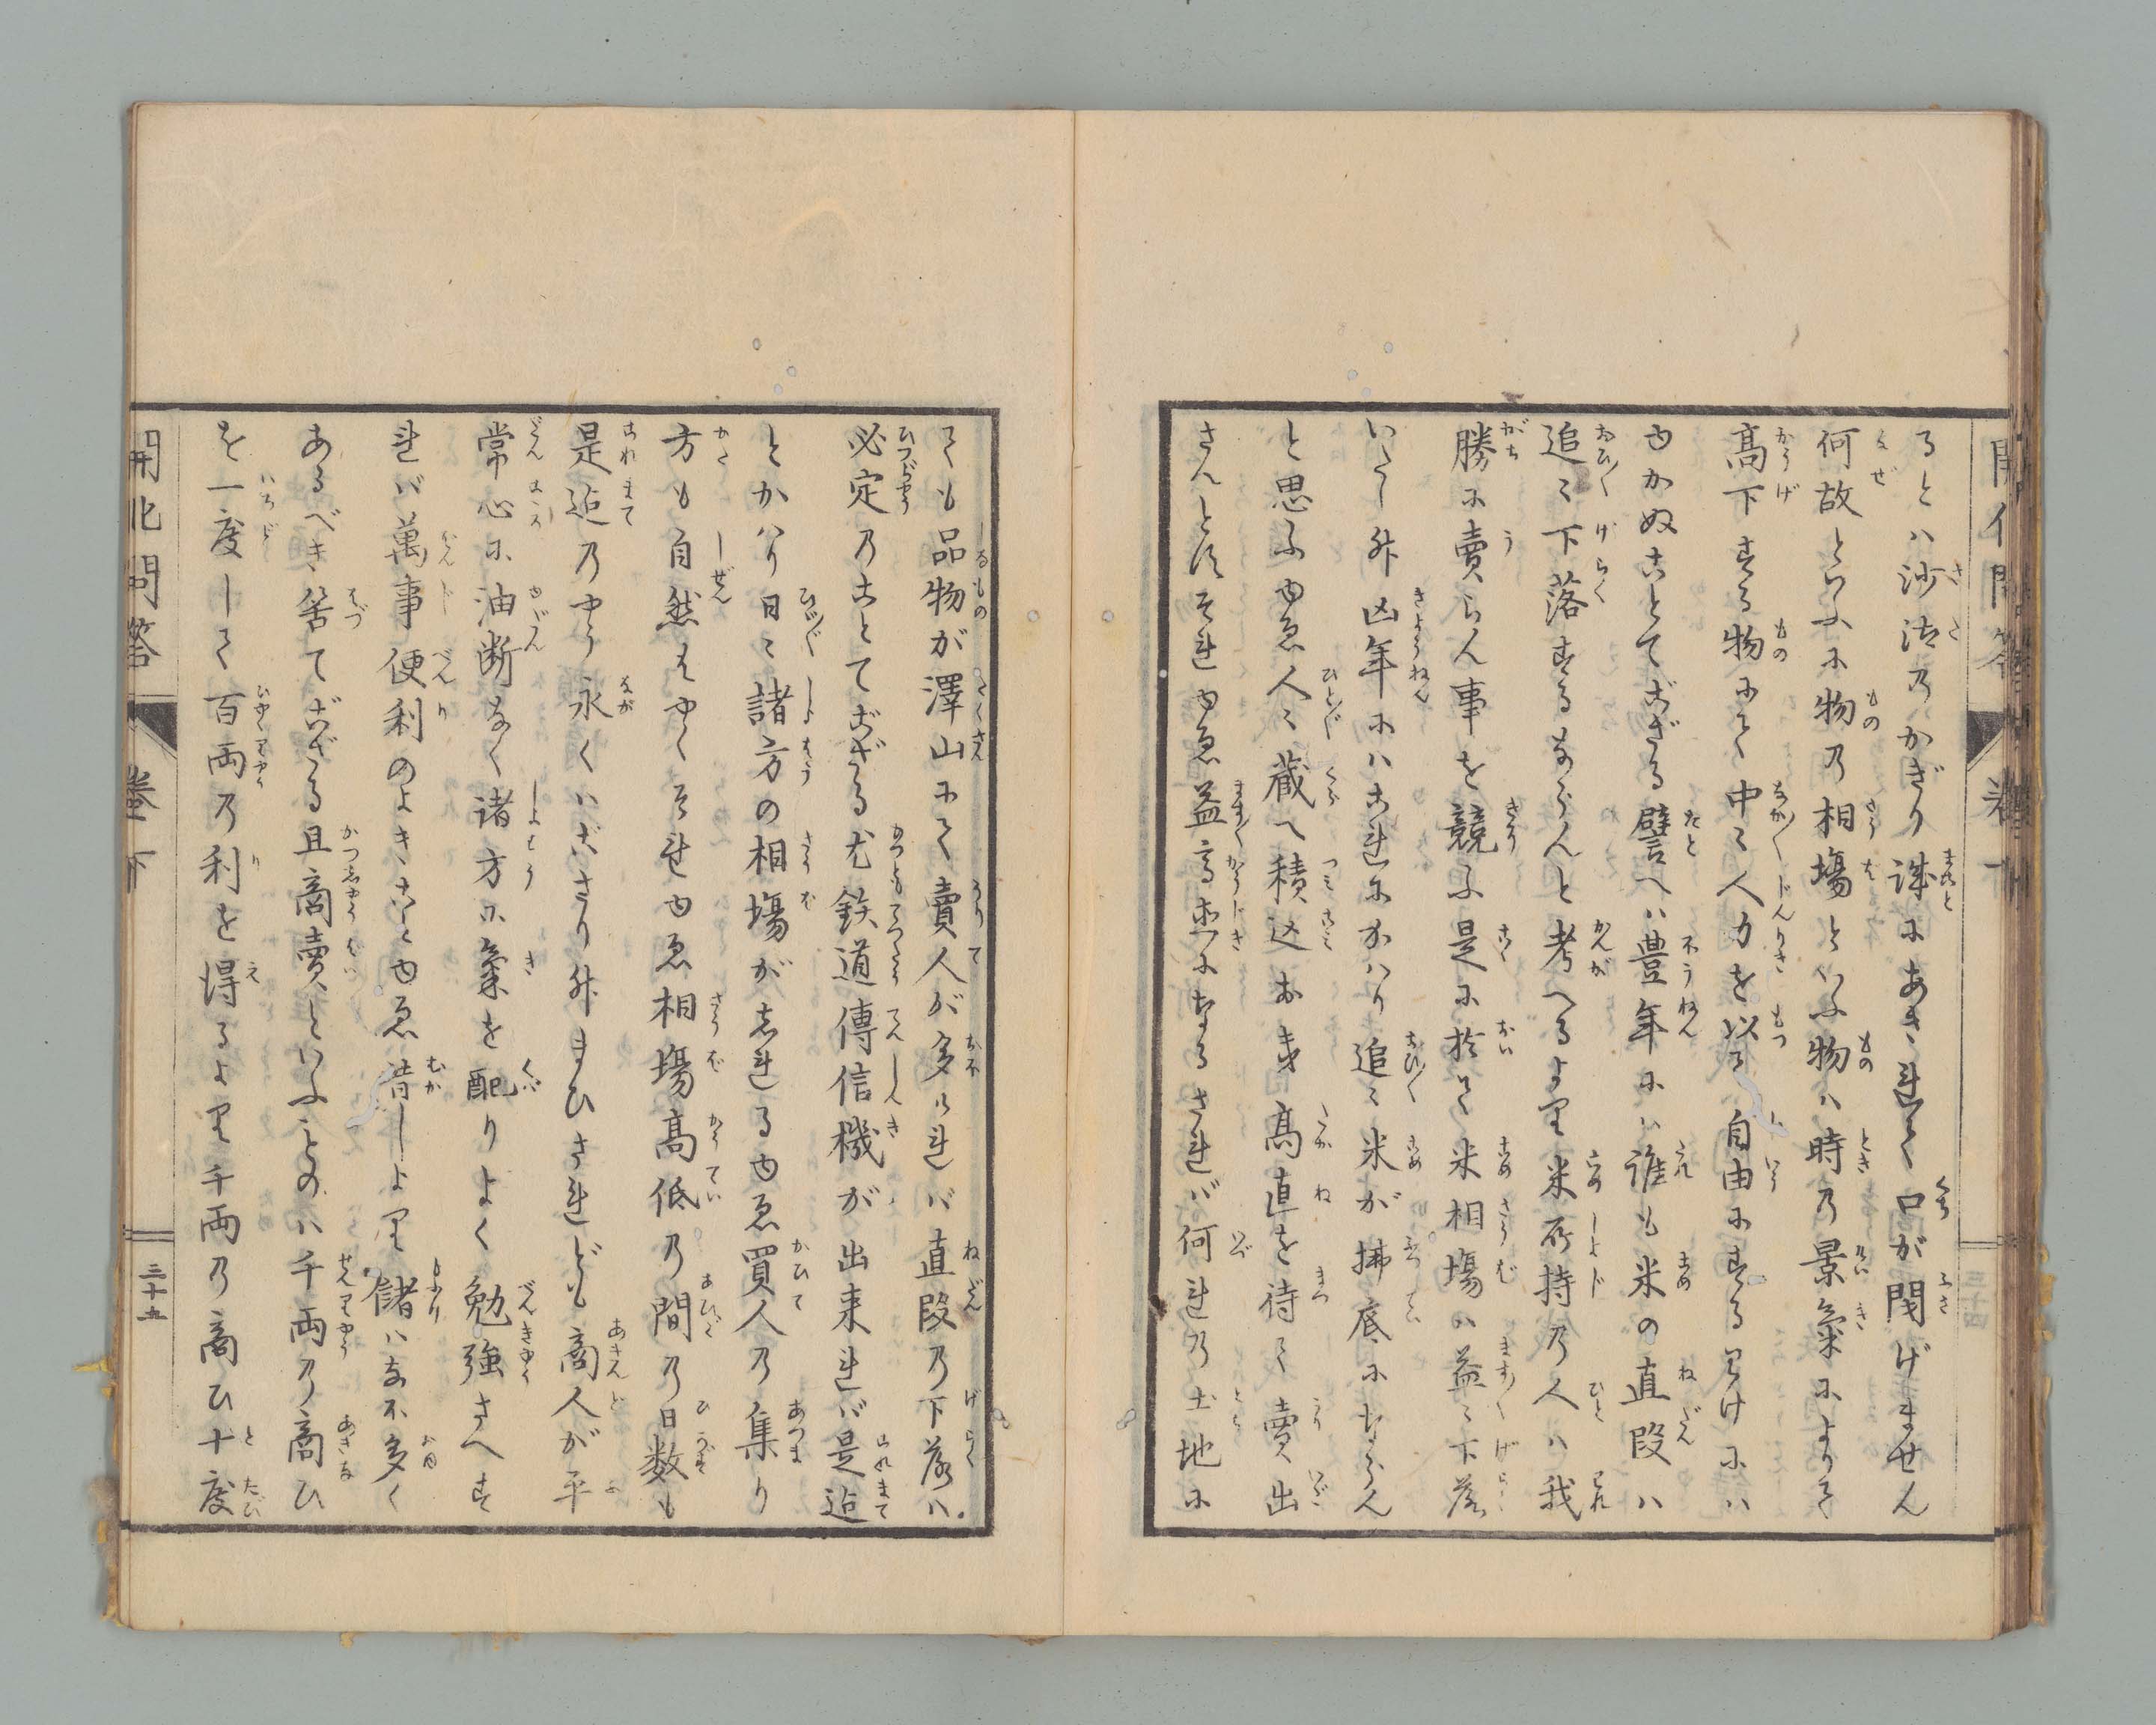 るとハ沙汰乃かぎり誠にあきれて口が閉げません
何故といふに物乃相場といふ物ハ時乃景氣によりて
高下する物にて中〻人力を以て自由にするわけにハ
ゆかぬことでござる譬へハ豊年にハ誰も米の直段ハ
追〻下落するならんと考へるより米所持乃人ハ我
勝に賣らん事を競ふ是に於て米相場ハ益〻下落
いたし外凶年にハこれにかハり追〻米が拂底にならん
と思ふゆゑ人〻藏へ積込おき高直を待て賣出
さんとすそれゆゑ益高直になるされバ何れ乃土地に
ても品物が澤山にて賣人が多けれバ直段乃下落ハ
必定乃ことでござる尤鉄道傳信機が出来れバ是迠
とかハり日〻諸方の相場がしれるゆゑ買人乃集り
方も自然はやくそれゆゑ相場高低乃間乃日数も
是迠乃やう永くハござり外まひされども商人が平
常心に油断なく諸方に氣を配りよく勉強さへす
れバ萬事便利のよきことゆゑ昔しより儲ハなほ多く
あるべき筈でござる且商賣といふものハ千両乃商ひ
を一度して百両乃利を得るより千両乃商ひ十度
開化問答
巻下
三十五